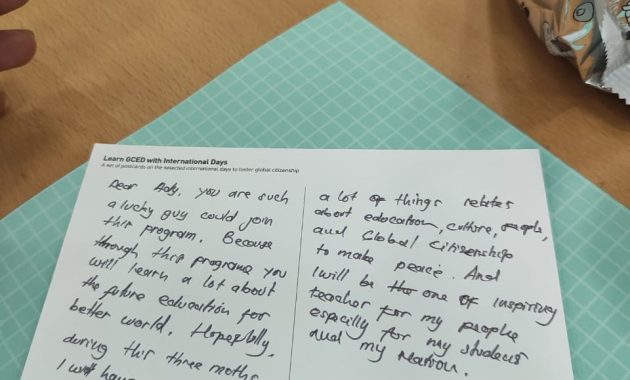 Learn GCED with International Days
A set of postcards on the selected international days to foster global citizenship
Dear Ady, you are such
a lucky guy could join
this program. Because
through this programe you
will learn a lot about
the future education for
better world. Hopefully,
during this three moths
I will have
a lot of things relates
about education, culture, people,
and Global Citizenship
to make peace. And
I will be the one of inspiring
teacher for my people
especilly for my students
and my Nation.